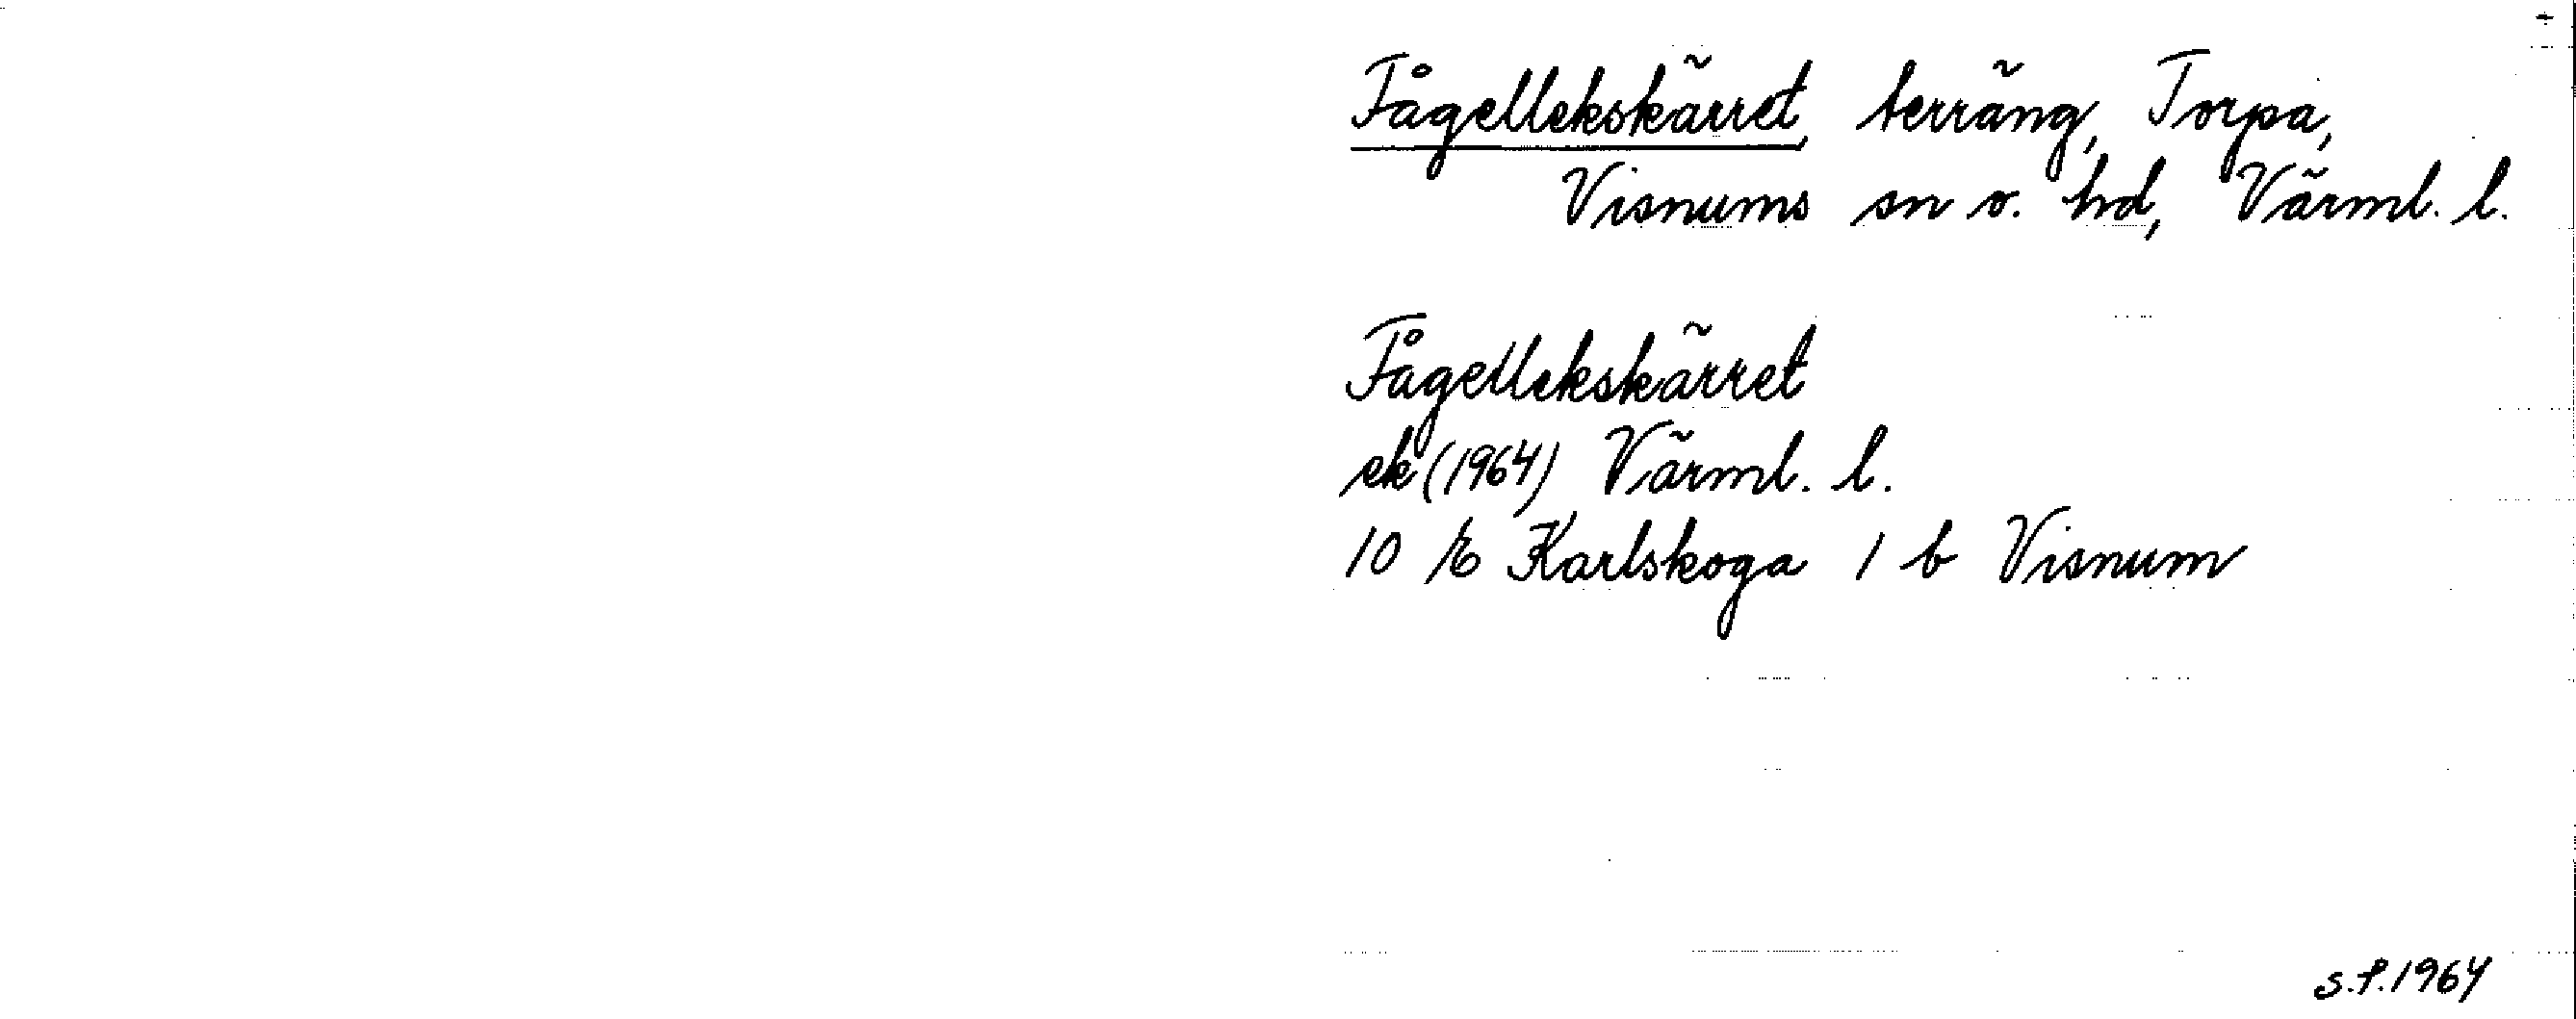 Fågellekskärret, terräng, Torpa,
Visnums sn o. hd, Värml. l.
Fågellekskärret
ek (1964) Värml. l.
10 E Karlskoga 1 b Visnum
S.P.1964